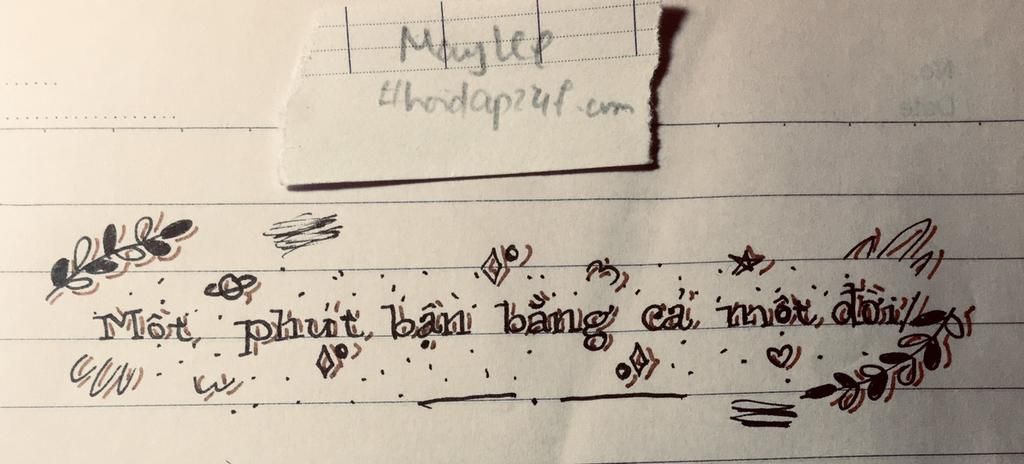 MayLEP
#hoidap247.com
No.
Date
Một phút bần bằng cả một đời